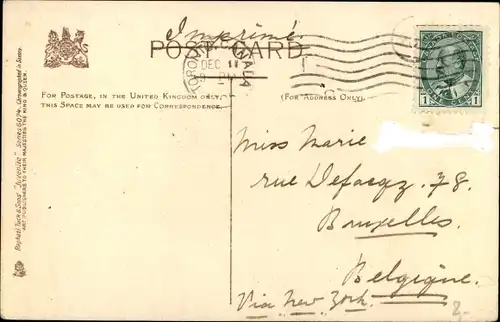 Imprimé.
POST CARD
TORONTO, CANADA
DEC 11
FOR POSTAGE, IN THE UNITED KINGDOM ONLY,
THIS SPACE MAY BE USED FOR CORRESPONDENCE.
(FOR ADDRESS ONLY.)
1 1
Miss Marie
rue Defacqz. 78.
Bruxelles.
Belgique.
Via New York.
Raphael Tuck & Sons' "Juvenile" Series 6074. Chromographed in Saxony.
ART PUBLISHERS TO THEIR MAJESTIES THE KING & QUEEN.